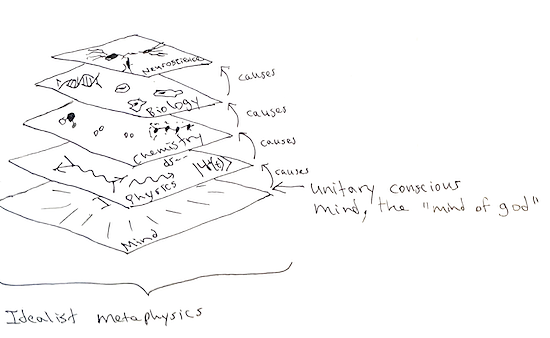 Neuroscience
causes
Biology
causes
Chemistry
causes
Physics
|Ψ(t)⟩
causes
Unitary conscious
mind, the "mind of god"
Mind
Idealist metaphysics